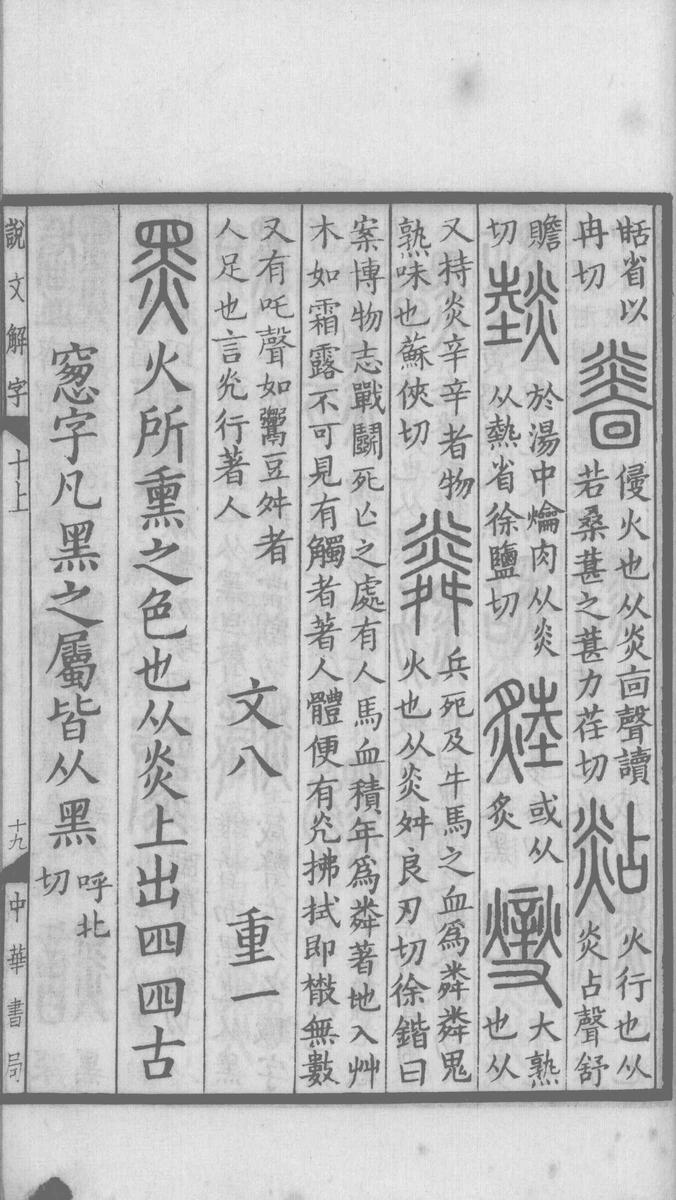 甛省以冉切㷠侵火也从炎㐭聲讀若桑葚之葚力荏切煔火行也从炎占聲舒
贍切燅於湯中爚肉从炎从熱省徐鹽切或从炙燮大熟也从
又持炎辛辛者物熟味也蘇俠切粦兵死及牛馬之血爲粦粦鬼火也从炎舛良刃切徐鍇曰
案博物志戰鬬死亾之處有人馬血積年爲粦著地入艸木如霜露不可見有觸者著人體便有光拂拭即散無數
又有吒聲如鬻豆舛者人足也言光行著人 文八 重一
黑火所熏之色也从炎上出四四古
窻字凡黑之屬皆从黑呼北切
說文解字 十上 十九 中華書局